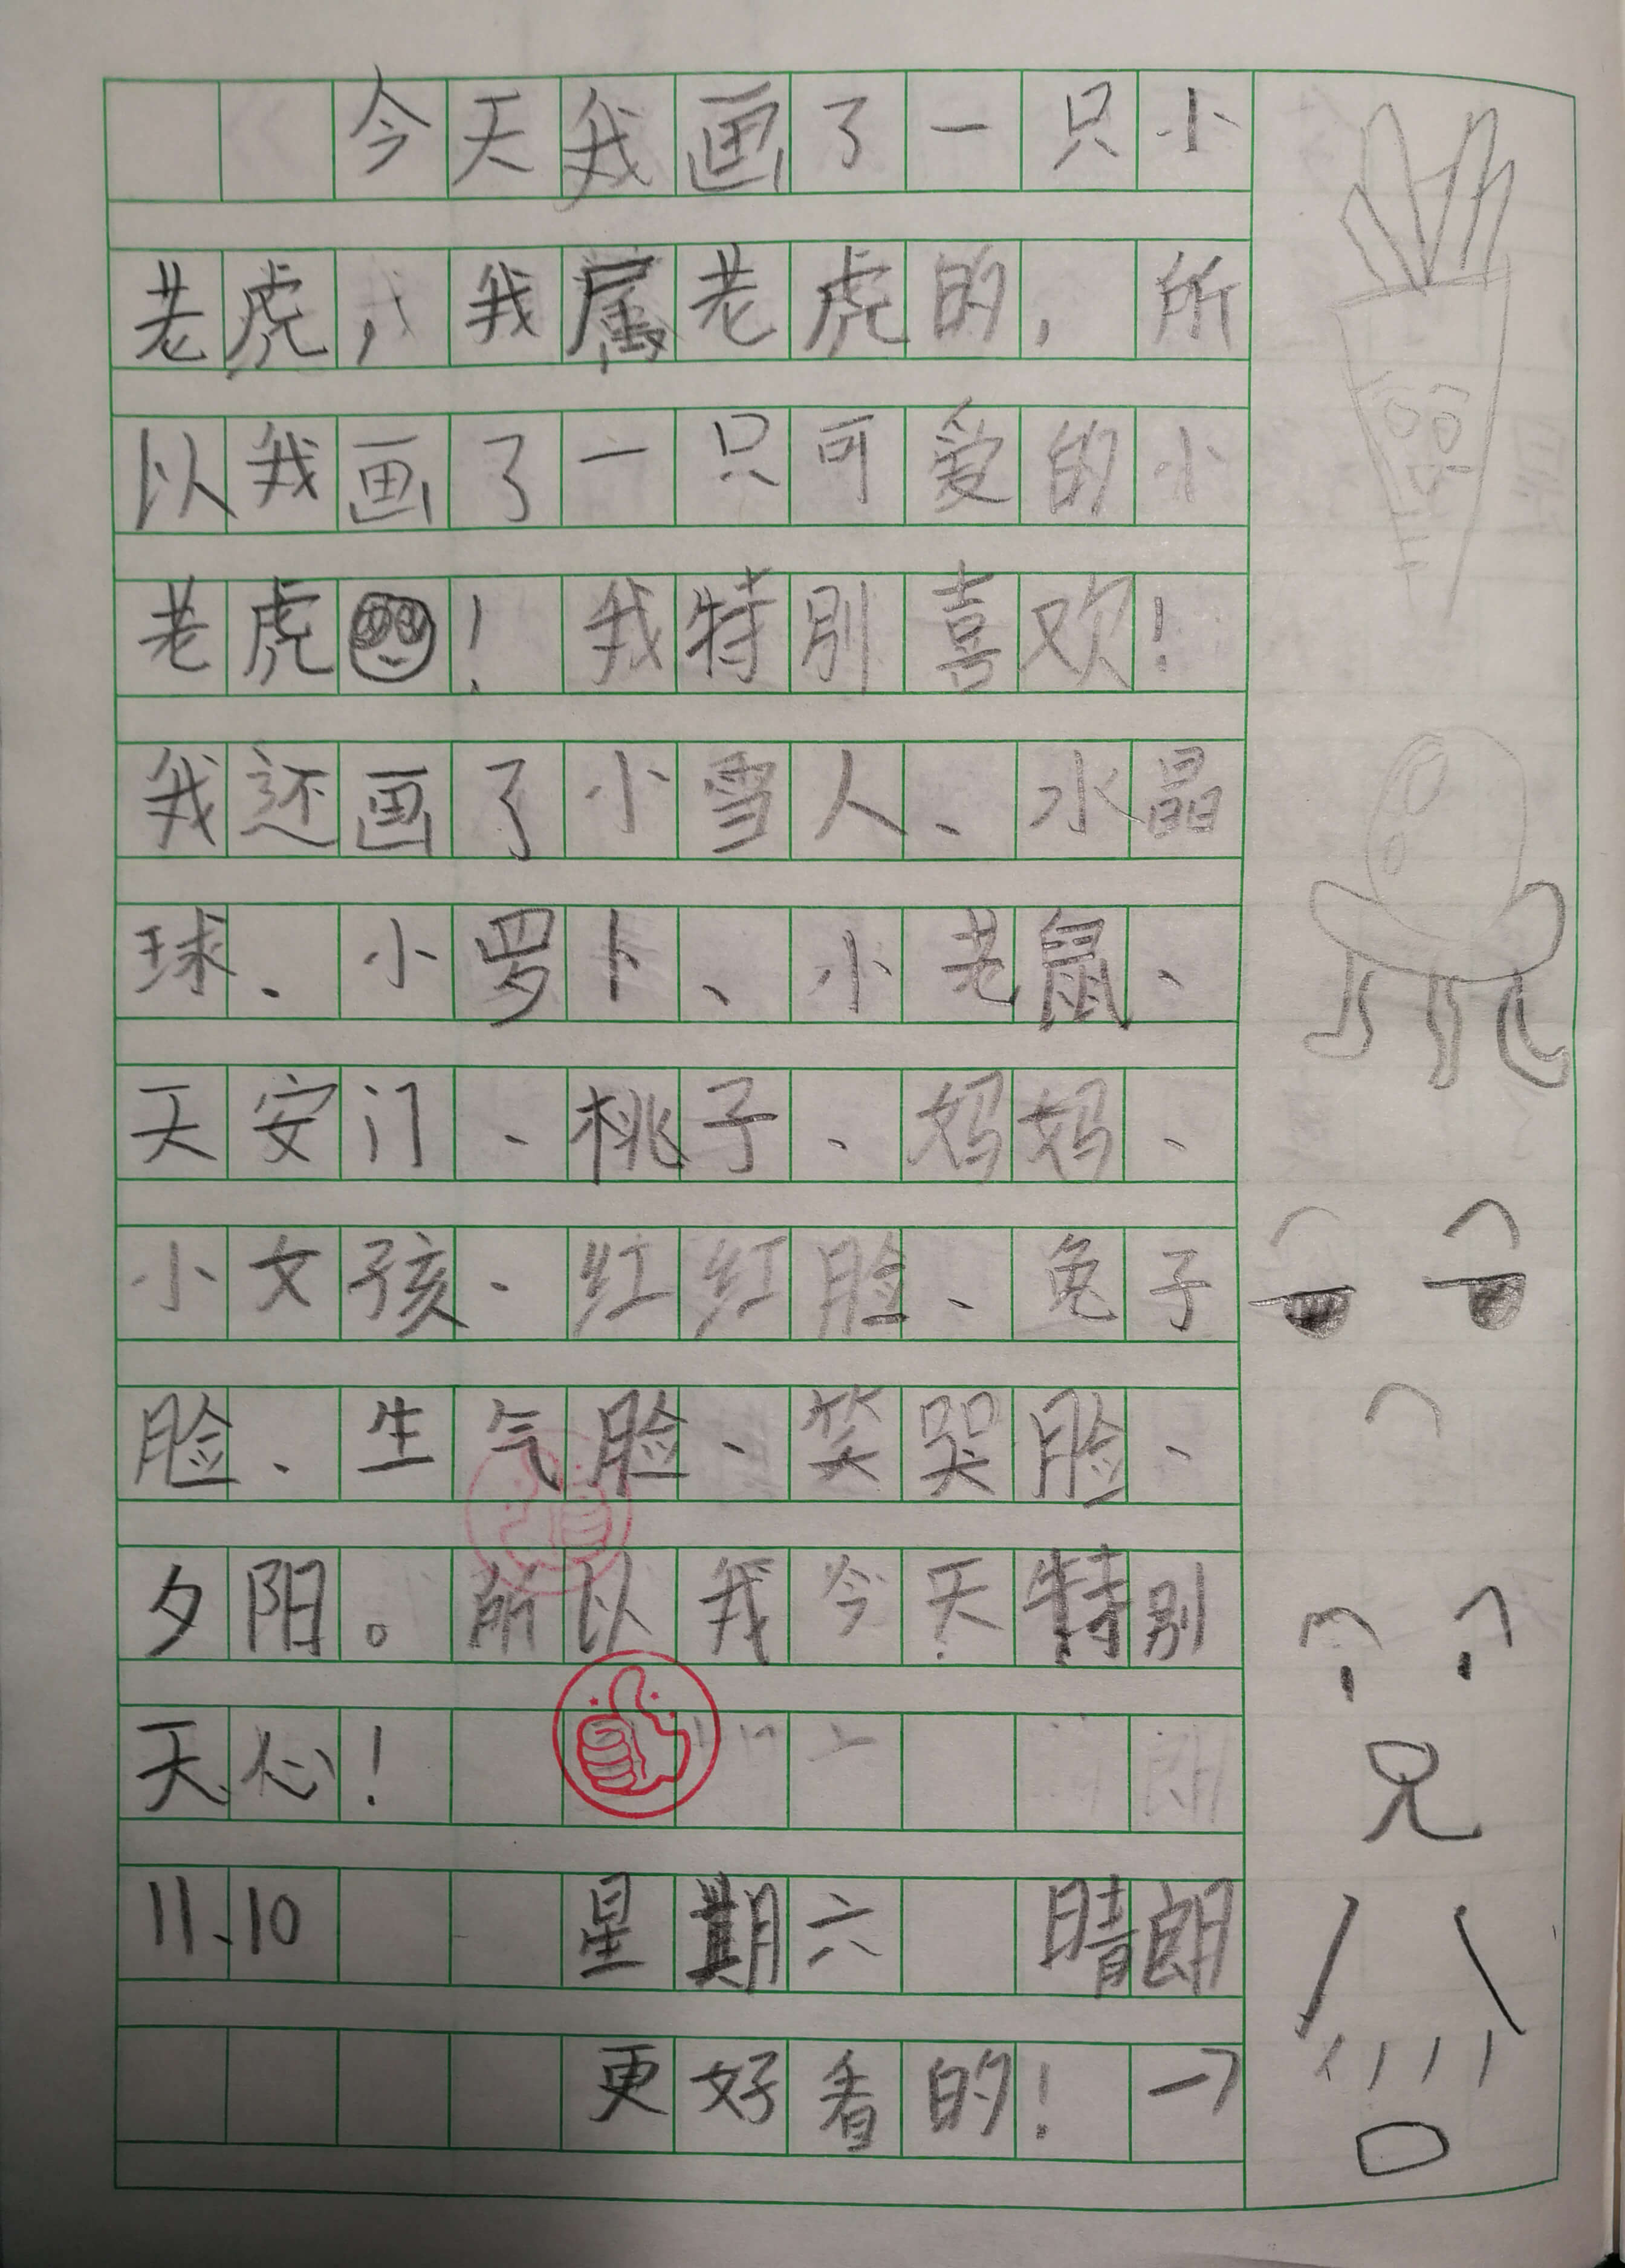 今天我画了一只小
老虎，我属老虎的，所
以我画了一只可爱的小
老虎！我特别喜欢！
我还画了小雪人、水晶
球、小罗卜、小老鼠、
天安门、桃子、妈妈、
小女孩、红红脸、兔子
脸、生气脸、笑哭脸、
夕阳。所以我今天特别
天心！
11、10 星期六 晴朗
更好看的！→